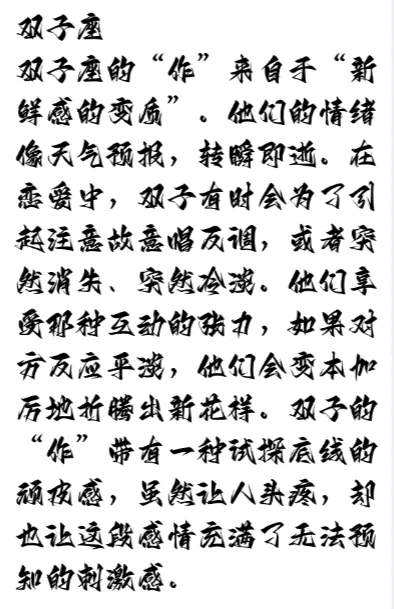 双子座
双子座的“作”来自于“新
鲜感的变质”。他们的情绪
像天气预报，转瞬即逝。在
恋爱中，双子有时会为了引
起注意故意唱反调，或者突
然消失、突然冷漠。他们享
受那种互动的张力，如果对
方反应平淡，他们会变本加
厉地折腾出新花样。双子的
“作”带有一种试探底线的
顽皮感，虽然让人头疼，却
也让这段感情充满了无法预
知的刺激感。